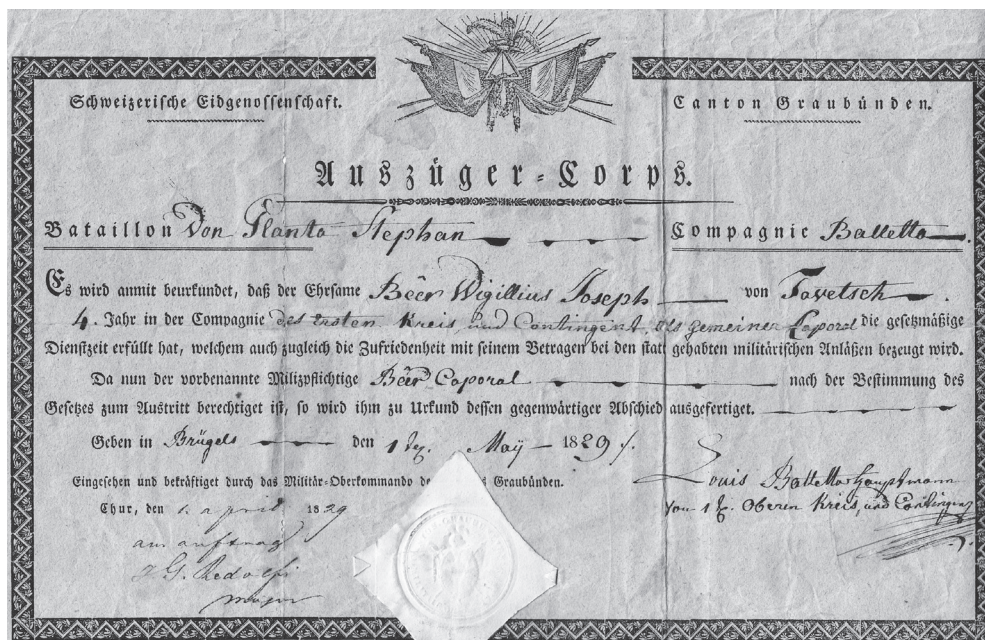 Schweizerische Eidgenossenschaft.
Canton Graubünden.
Auszüger-Corps.
Bataillon Von Planta Stephan
Compagnie Balletta.
Es wird anmit beurkundet, daß der Ehrsame Béer Wigillius Joseph von Tavetsch.
4. Jahr in der Compagnie des ersten Kreis und Contingent als gemeiner Caporal die gesetzmäßige
Dienstzeit erfüllt hat, welchem auch zugleich die Zufriedenheit mit seinem Betragen bei den statt gehabten militärischen Anläßen bezeugt wird.
Da nun der vorbenannte Milizpflichtige Béer Caporal nach der Bestimmung des
Gesetzes zum Austritt berechtiget ist, so wird ihm zu Urkund dessen gegenwärtiger Abschied ausgefertiget.
Geben in Brügels den 1 May 1829
Louis Balletta Hauptmann
Eingesehen und bekräftiget durch das Militär-Oberkommando de s Graubünden.
vom 1 Oberen Kreis, und Contingent
Chur, den 1. april 1829
aus auftrag
J G. Redolfi
major